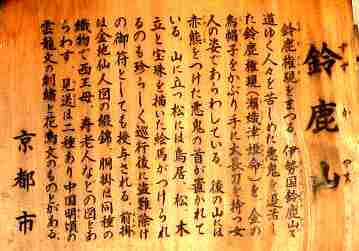 鈴鹿山
すず か やま
鈴鹿権現をまつる 伊勢国鈴鹿山で
道ゆく人々を苦しめた悪鬼を退治し
た鈴鹿権現(瀬織津姫命)を 金の
烏帽子をかぶり手に大長刀を持つ女
人の姿であらわしている。後の山には
赤熊をつけた悪鬼の首が置かれて
いる。山に立つ松には鳥居、松、木
立と宝珠を描いた絵馬がつけられ
るのも珍らしく巡行後に盗難除け
の御符としても授与される。前掛
は金地仙人図の綴錦 胴掛は同種の
織物で西王母 寿老人などの図をあ
らわす 見送は二種あり中国明頃の
雲龍文の刺繍と花鳥文のものとがある。
京都市